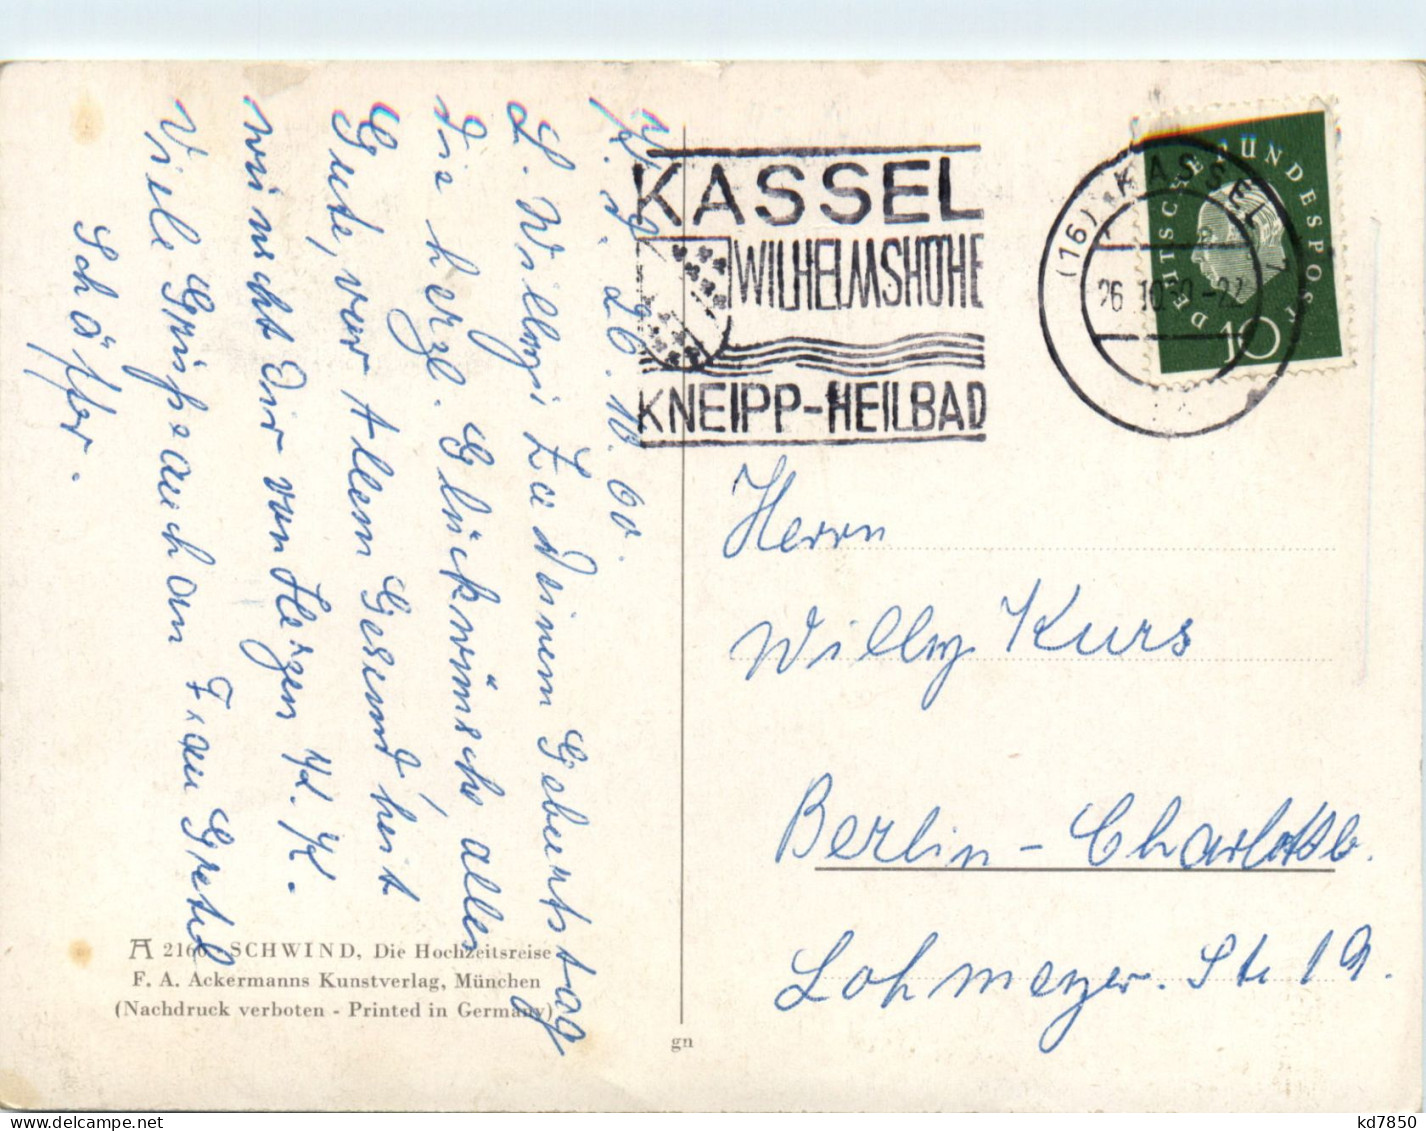 26.10.60.
L. Willy! Zu Deinem Geburtstag
Die herzl. Glückwünsche alles
Gute, vor Allem Gesundheit
wünscht Dir von Herzen
Viele Grüße auch an Frau Gretel
Schäffer.
KASSEL
WILHELMSHÖHE
KNEIPP-HEILBAD
(16) KASSEL 7
26.10.60-22
DEUTSCHE BUNDESPOST
10
Herrn
Willy Kurs
Berlin - Charlottb.
Lohmeyer. Str. 19.
2160 SCHWIND, Die Hochzeitsreise
F. A. Ackermanns Kunstverlag, München
(Nachdruck verboten - Printed in Germany)
gn
kd7850